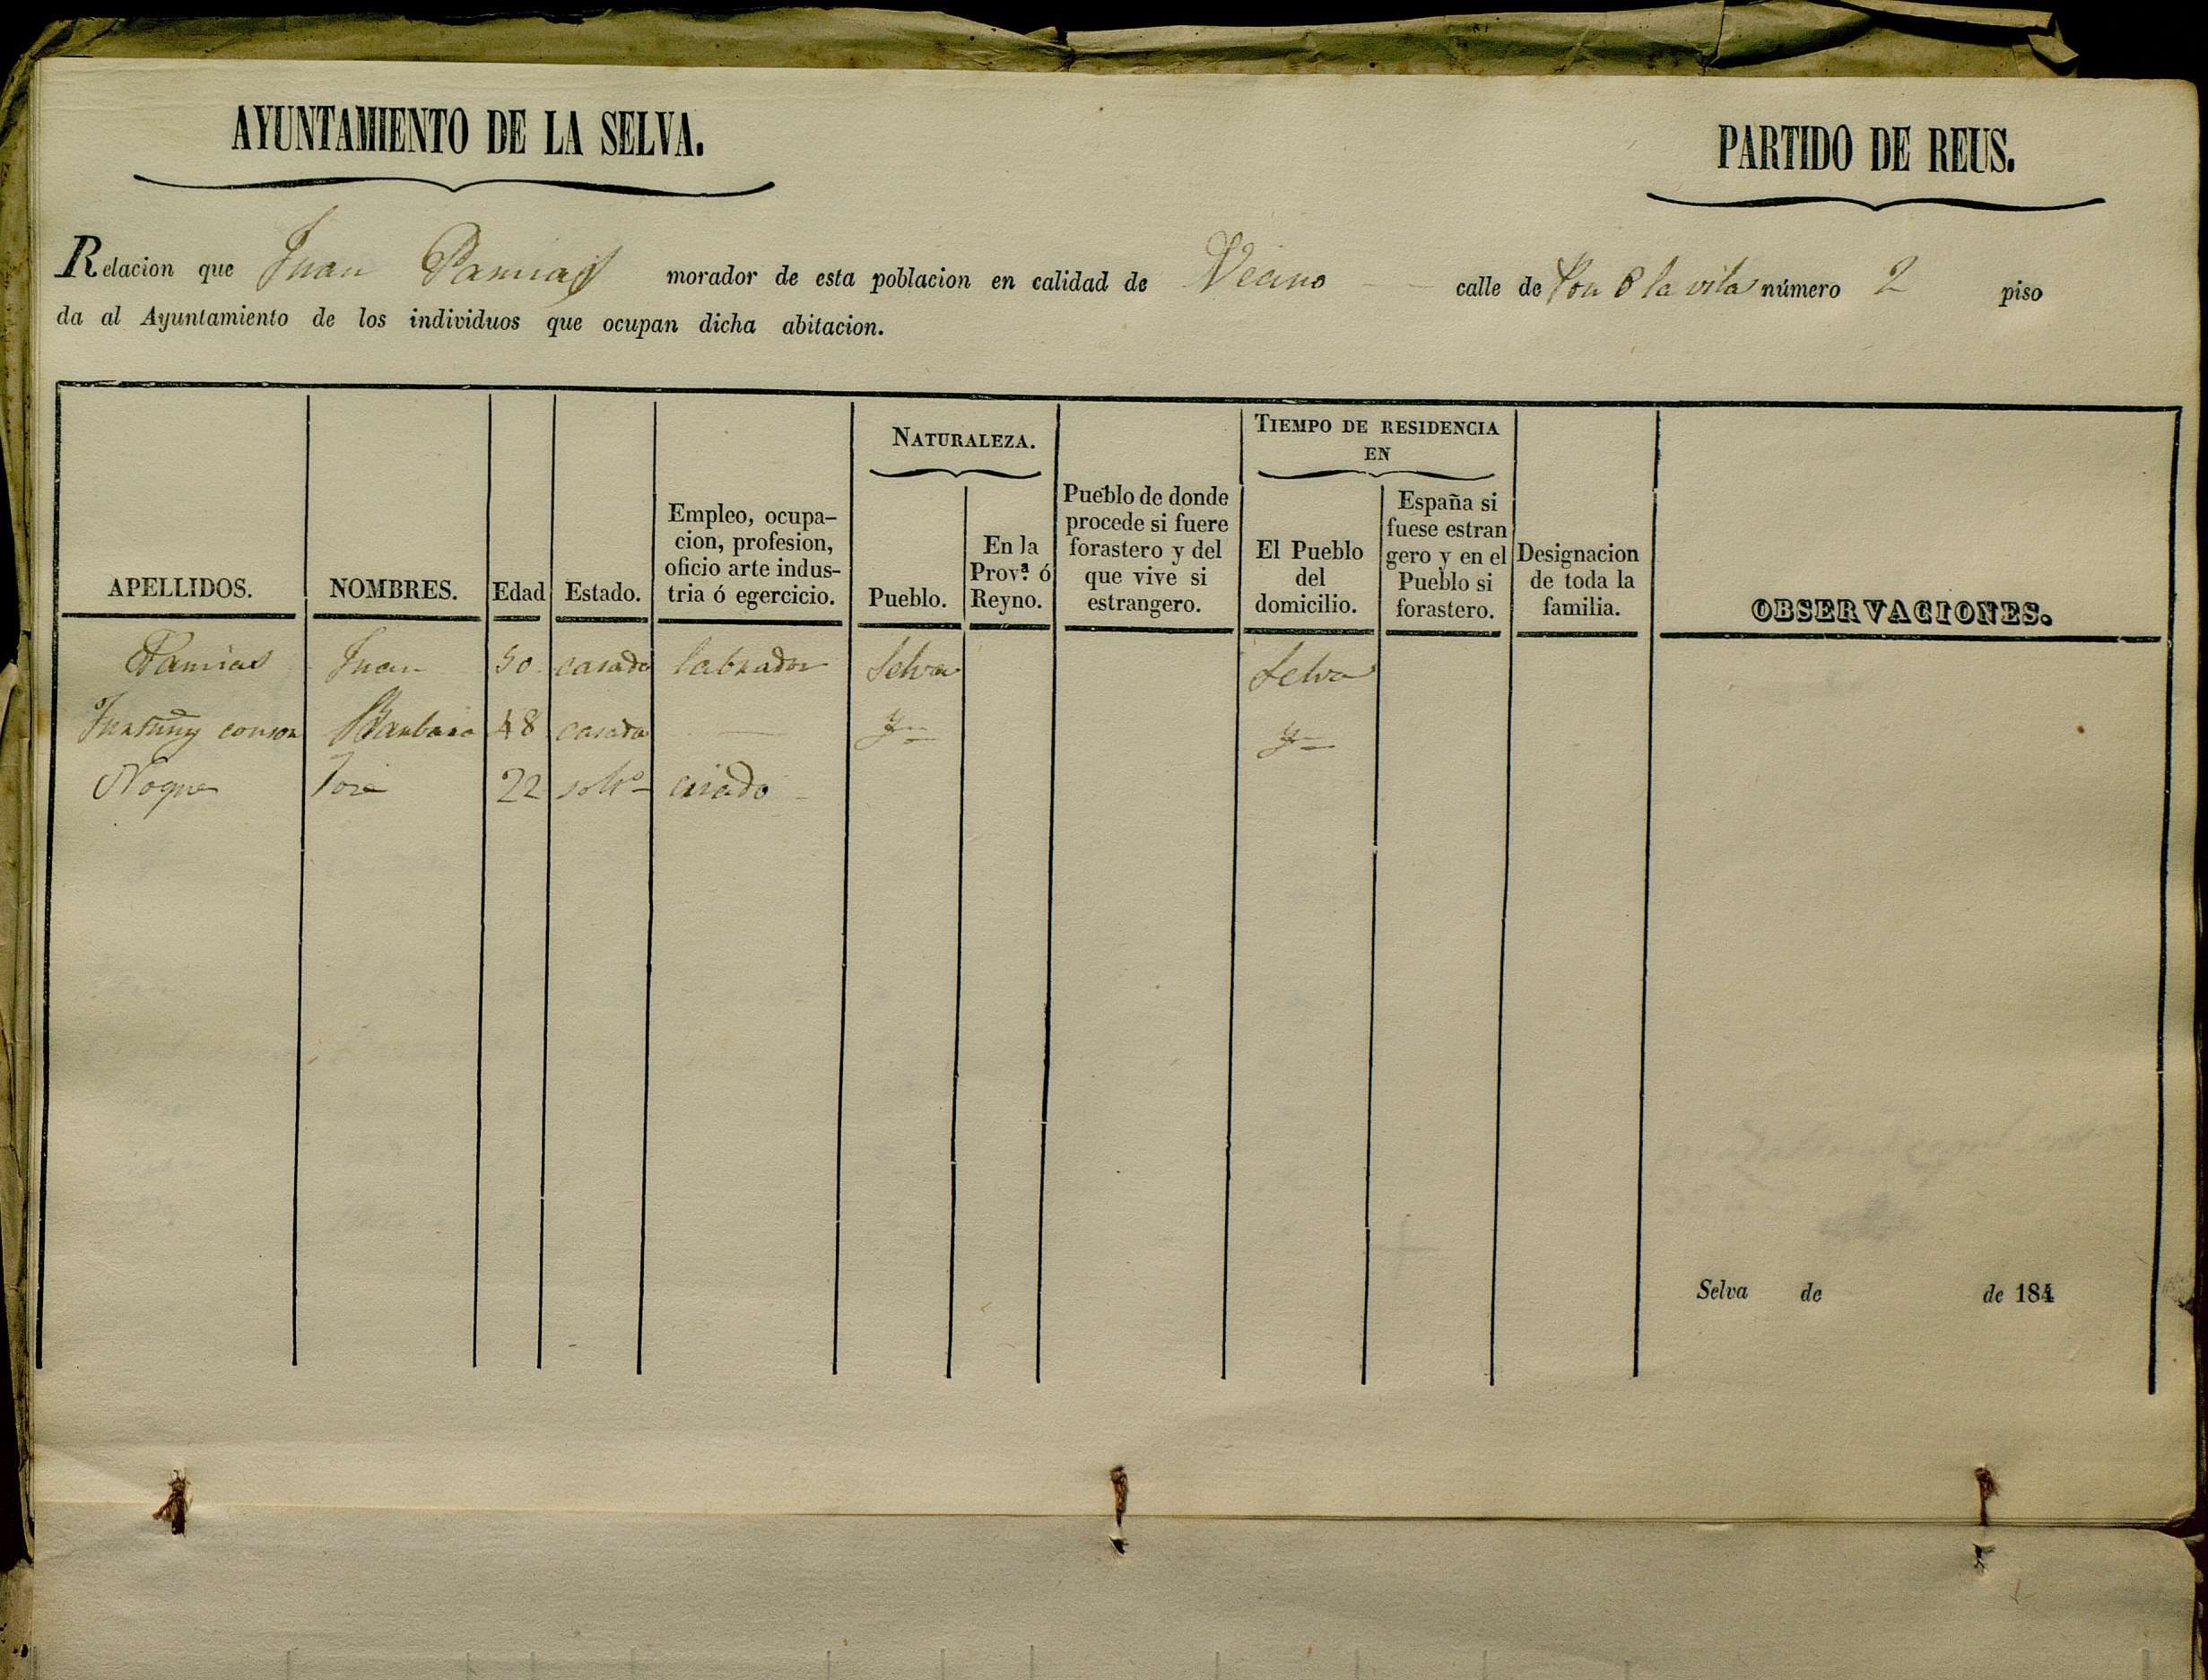 AYUNTAMIENTO DE LA SELVA.
PARTIDO DE REUS.
Relacion que Juan Pamias morador de esta poblacion en calidad de Vecino calle de la vila número 2 piso
da al Ayuntamiento de los individuos que ocupan dicha abitacion.
NATURALEZA.
TIEMPO DE RESIDENCIA
EN
APELLIDOS.
NOMBRES.
Edad
Estado.
Empleo, ocupa-
cion, profesion,
oficio arte indus-
tria ó egercicio.
Pueblo.
En la
Prov.ª ó
Reyno.
Pueblo de donde
procede si fuere
forastero y del
que vive si
estrangero.
El Pueblo
del
domicilio.
España si
fuese estran
gero y en el
Pueblo si
forastero.
Designacion
de toda la
familia.
OBSERVACIONES.
Pamias Juan 50 casado labrador Selva Selva
consor Barbara 48 casada
Nogue José 22 solt.º criado
Selva de de 184